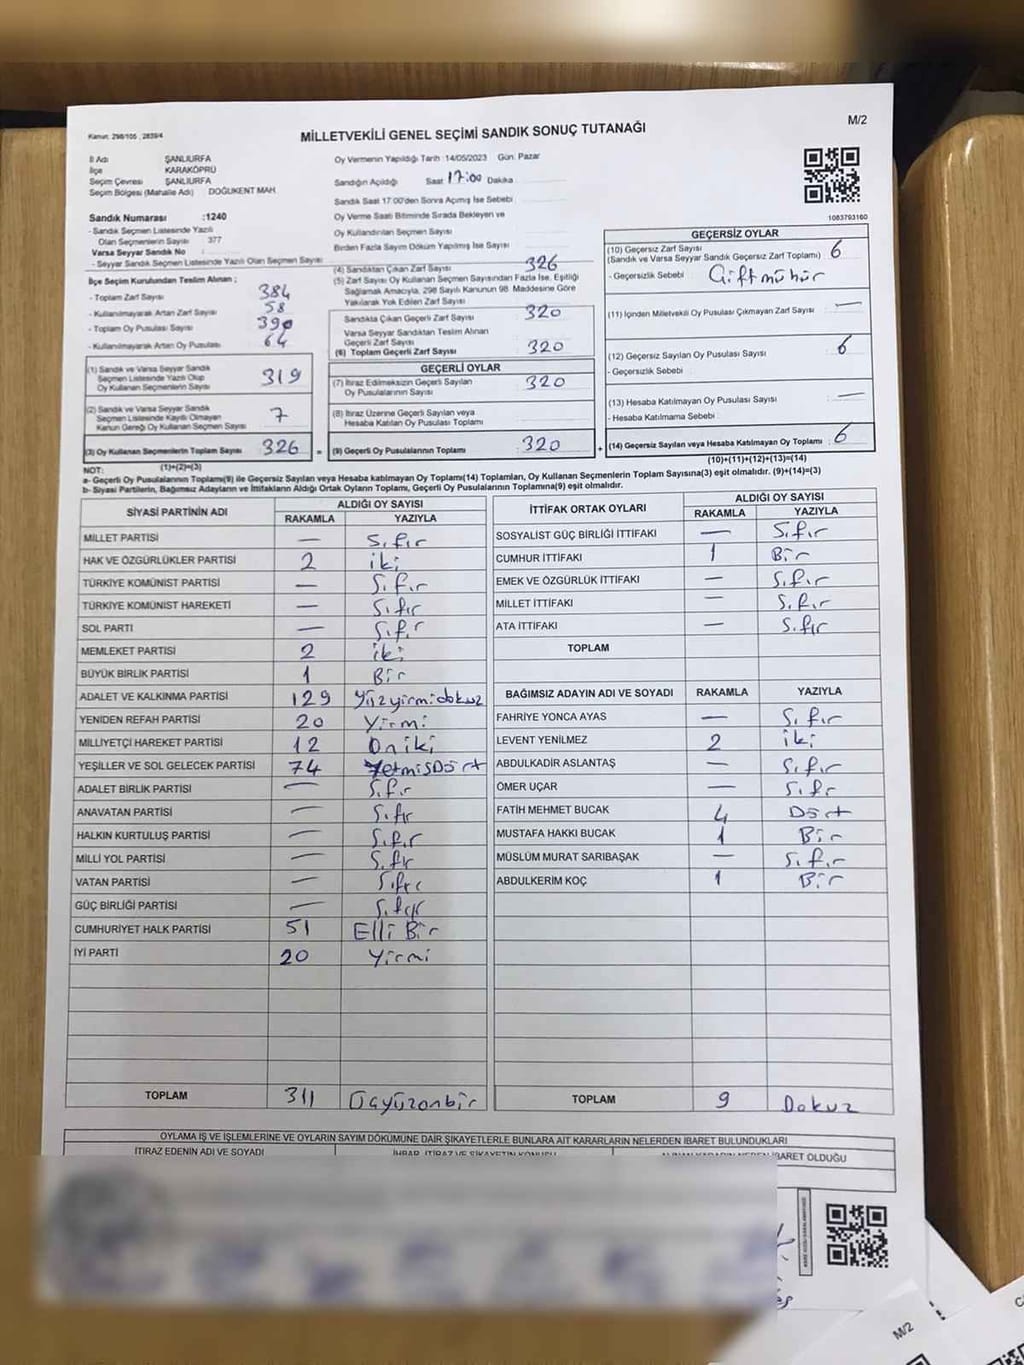 Kanun: 298/105 , 2839/4
MİLLETVEKİLİ GENEL SEÇİMİ SANDIK SONUÇ TUTANAĞI
M/2
İl Adı ŞANLIURFA
İlçe KARAKÖPRÜ
Seçim Çevresi ŞANLIURFA
Seçim Bölgesi (Mahalle Adı) DOĞUKENT MAH.
Sandık Numarası :1240
- Sandık Seçmen Listesinde Yazılı
Olan Seçmenlerin Sayısı 377
Varsa Seyyar Sandık No :
- Seyyar Sandık Seçmen Listesinde Yazılı Olan Seçmen Sayısı
İlçe Seçim Kurulundan Teslim Alınan ;
- Toplam Zarf Sayısı 384
- Kullanılmayarak Artan Zarf Sayısı 58
- Toplam Oy Pusulası Sayısı 390
- Kullanılmayarak Artan Oy Pusulası 64
(1) Sandık ve Varsa Seyyar Sandık
Seçmen Listesinde Yazılı Olup
Oy Kullanan Seçmenlerin Sayısı 319
(2) Sandık ve Varsa Seyyar Sandık
Seçmen Listesinde Kayıtlı Olmayan
Kanun Gereği Oy Kullanan Seçmen Sayısı 7
(3) Oy Kullanan Seçmenlerin Toplam Sayısı 326
Oy Vermenin Yapıldığı Tarih :14/05/2023 Gün: Pazar
Sandığın Açıldığı Saat 17:00 Dakika
Sandık Saat 17:00'den Sonra Açılmış İse Sebebi
Oy Verme Saati Bitiminde Sırada Bekleyen ve
Oy Kullandırılan Seçmen Sayısı
Birden Fazla Sayım Döküm Yapılmış İse Sayısı
(4) Sandıktan Çıkan Zarf Sayısı 326
(5) Zarf Sayısı Oy Kullanan Seçmen Sayısından Fazla İse, Eşitliği
Sağlamak Amacıyla, 298 Sayılı Kanunun 98. Maddesine Göre
Yakılarak Yok Edilen Zarf Sayısı
Sandıkta Çıkan Geçerli Zarf Sayısı 320
Varsa Seyyar Sandıktan Teslim Alınan
Geçerli Zarf Sayısı
(6) Toplam Geçerli Zarf Sayısı 320
GEÇERLİ OYLAR
(7) İtiraz Edilmeksizin Geçerli Sayılan
Oy Pusulalarının Sayısı 320
(8) İtiraz Üzerine Geçerli Sayılan veya
Hesaba Katılan Oy Pusulası Toplamı
= (9) Geçerli Oy Pusulalarının Toplamı 320
1083793160
GEÇERSİZ OYLAR
(10) Geçersiz Zarf Sayısı
(Sandık ve Varsa Seyyar Sandık Geçersiz Zarf Toplamı) 6
- Geçersizlik Sebebi Çift mühür
(11) İçinden Milletvekili Oy Pusulası Çıkmayan Zarf Sayısı —
(12) Geçersiz Sayılan Oy Pusulası Sayısı 6
- Geçersizlik Sebebi
(13) Hesaba Katılmayan Oy Pusulası Sayısı —
- Hesaba Katılmama Sebebi
+ (14) Geçersiz Sayılan veya Hesaba Katılmayan Oy Toplamı 6
(1)+(2)=(3)
(10)+(11)+(12)+(13)=(14)
NOT:
a- Geçerli Oy Pusulalarının Toplamı(9) ile Geçersiz Sayılan veya Hesaba katılmayan Oy Toplamı(14) Toplamları, Oy Kullanan Seçmenlerin Toplam Sayısına(3) eşit olmalıdır. (9)+(14)=(3)
b- Siyasi Partilerin, Bağımsız Adayların ve İttifakların Aldığı Ortak Oyların Toplamı, Geçerli Oy Pusulalarının Toplamına(9) eşit olmalıdır.
SİYASİ PARTİNİN ADI ALDIĞI OY SAYISI
RAKAMLA YAZIYLA
MİLLET PARTİSİ — Sıfır
HAK VE ÖZGÜRLÜKLER PARTİSİ 2 iki
TÜRKİYE KOMÜNİST PARTİSİ — Sıfır
TÜRKİYE KOMÜNİST HAREKETİ — Sıfır
SOL PARTİ — Sıfır
MEMLEKET PARTİSİ 2 iki
BÜYÜK BİRLİK PARTİSİ 1 Bir
ADALET VE KALKINMA PARTİSİ 129 Yüzyirmidokuz
YENİDEN REFAH PARTİSİ 20 Yirmi
MİLLİYETÇİ HAREKET PARTİSİ 12 Oniki
YEŞİLLER VE SOL GELECEK PARTİSİ 74 YetmişDört
ADALET BİRLİK PARTİSİ — Sıfır
ANAVATAN PARTİSİ — Sıfır
HALKIN KURTULUŞ PARTİSİ — Sıfır
MİLLİ YOL PARTİSİ — Sıfır
VATAN PARTİSİ — Sıfır
GÜÇ BİRLİĞİ PARTİSİ — Sıfır
CUMHURİYET HALK PARTİSİ 51 Elli Bir
İYİ PARTİ 20 Yirmi
TOPLAM 311 Üçyüzonbir
İTTİFAK ORTAK OYLARI ALDIĞI OY SAYISI
RAKAMLA YAZIYLA
SOSYALİST GÜÇ BİRLİĞİ İTTİFAKI — Sıfır
CUMHUR İTTİFAKI 1 Bir
EMEK VE ÖZGÜRLÜK İTTİFAKI — Sıfır
MİLLET İTTİFAKI — Sıfır
ATA İTTİFAKI — Sıfır
TOPLAM
BAĞIMSIZ ADAYIN ADI VE SOYADI RAKAMLA YAZIYLA
FAHRİYE YONCA AYAS — Sıfır
LEVENT YENİLMEZ 2 iki
ABDULKADİR ASLANTAŞ — Sıfır
ÖMER UÇAR — Sıfır
FATİH MEHMET BUCAK 4 Dört
MUSTAFA HAKKI BUCAK 1 Bir
MÜSLÜM MURAT SARIBAŞAK — Sıfır
ABDULKERİM KOÇ 1 Bir
TOPLAM 9 Dokuz
OYLAMA İŞ VE İŞLEMLERİNE VE OYLARIN SAYIM DÖKÜMÜNE DAİR ŞİKAYETLERLE BUNLARA AİT KARARLARIN NELERDEN İBARET BULUNDUKLARI
İTİRAZ EDENİN ADI VE SOYADI İHBAR, İTİRAZ VE ŞİKAYETİN KONUSU ALINAN KARARIN NEDEN İBARET OLDUĞU
M/2